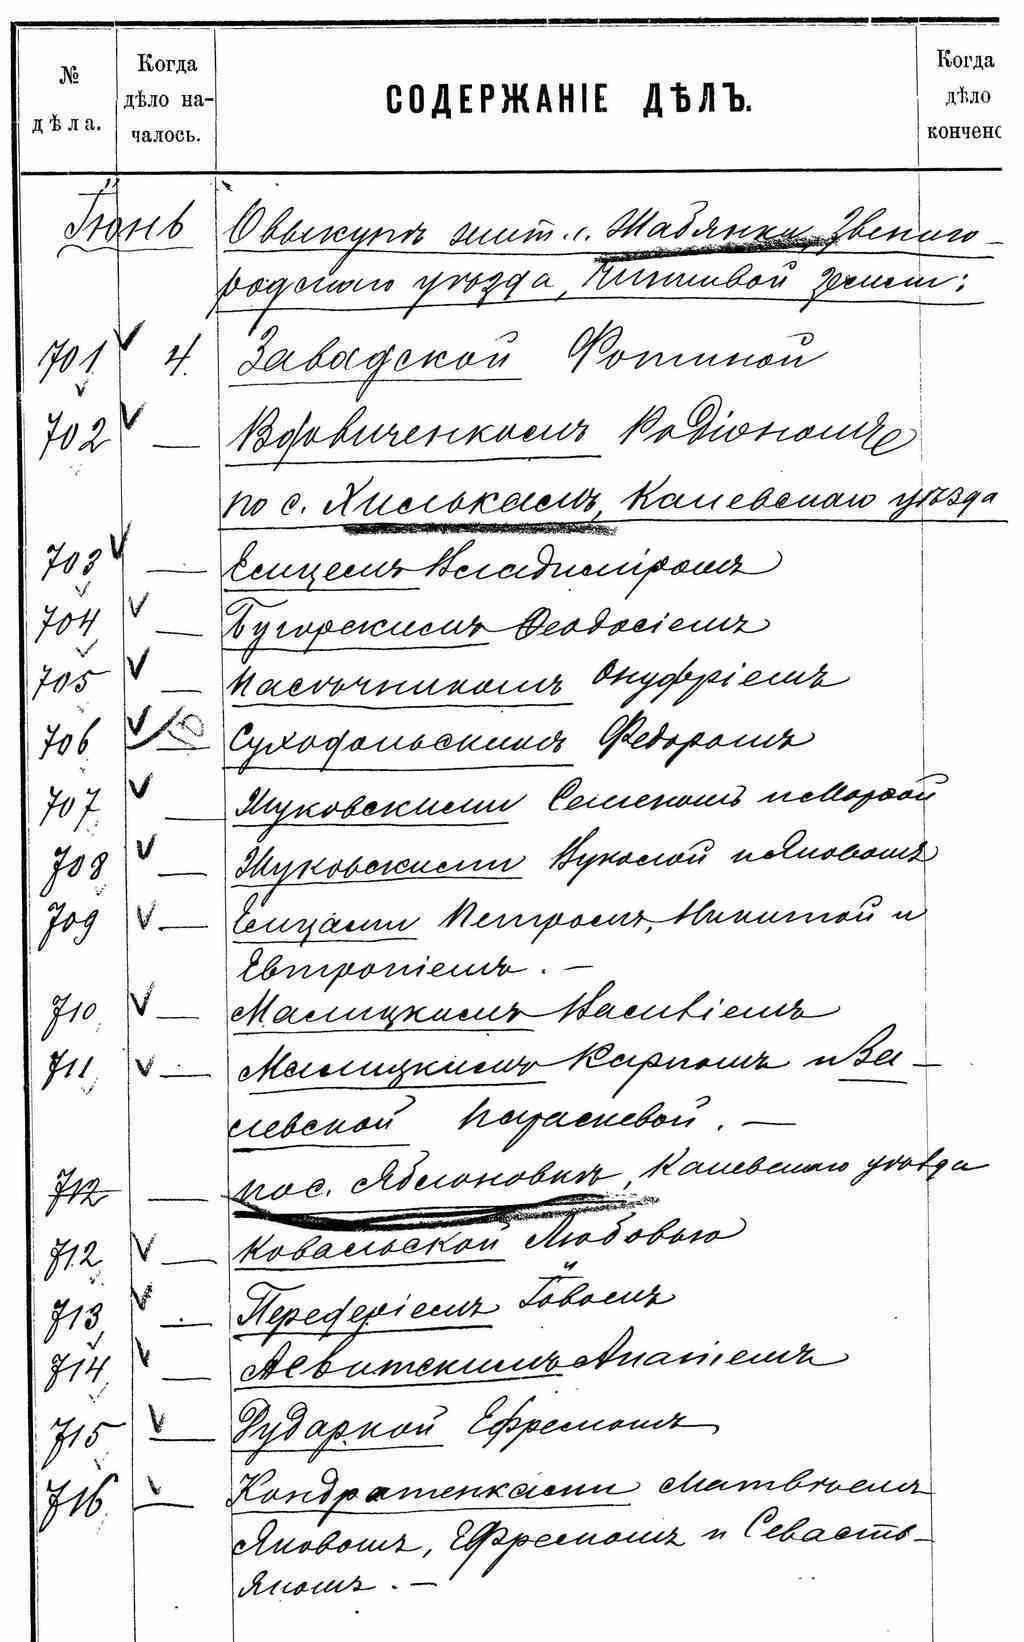 №
дѣла.
Когда
дѣло на-
чалось.
СОДЕРЖАНІЕ ДѢЛЪ.
Когда
дѣло
кончено
Іюнь О выкупѣ жит. с. Жабянки, Звениго-
родскаго уѣзда, чиншевой земли:
701 4. Завадской Фотиной
702 — Вдовиченкомъ Родіономъ
по с. Хилькамъ, Каневскаго уѣзда
703 — Елицемъ Владиміромъ
704 — Бугорскимъ Феодосіемъ
705 — Пасѣчникомъ Онуфріемъ
706 — Суходольскимъ Федоромъ
707 — Жуковскими Семеномъ и Марѳой
708 — Жуковскими Вуколой и Яковомъ
709 — Елицами Петромъ, Никитой и
Евтропіемъ. —
710 — Малицкимъ Василіемъ
711 — Малицкимъ Карпомъ и Ва-
левской Параскевой. —
712 — по с. Яблоновкѣ, Каневскаго уѣзда
712 — Ковальской Любовью
713 — Іовомъ
714 — Левитскимъ Ипатіемъ
715 — Рударкой Ефремомъ
716 — Кондратенками Матвѣемъ
Яковомъ, Ефремомъ и Севасть-
яномъ. —